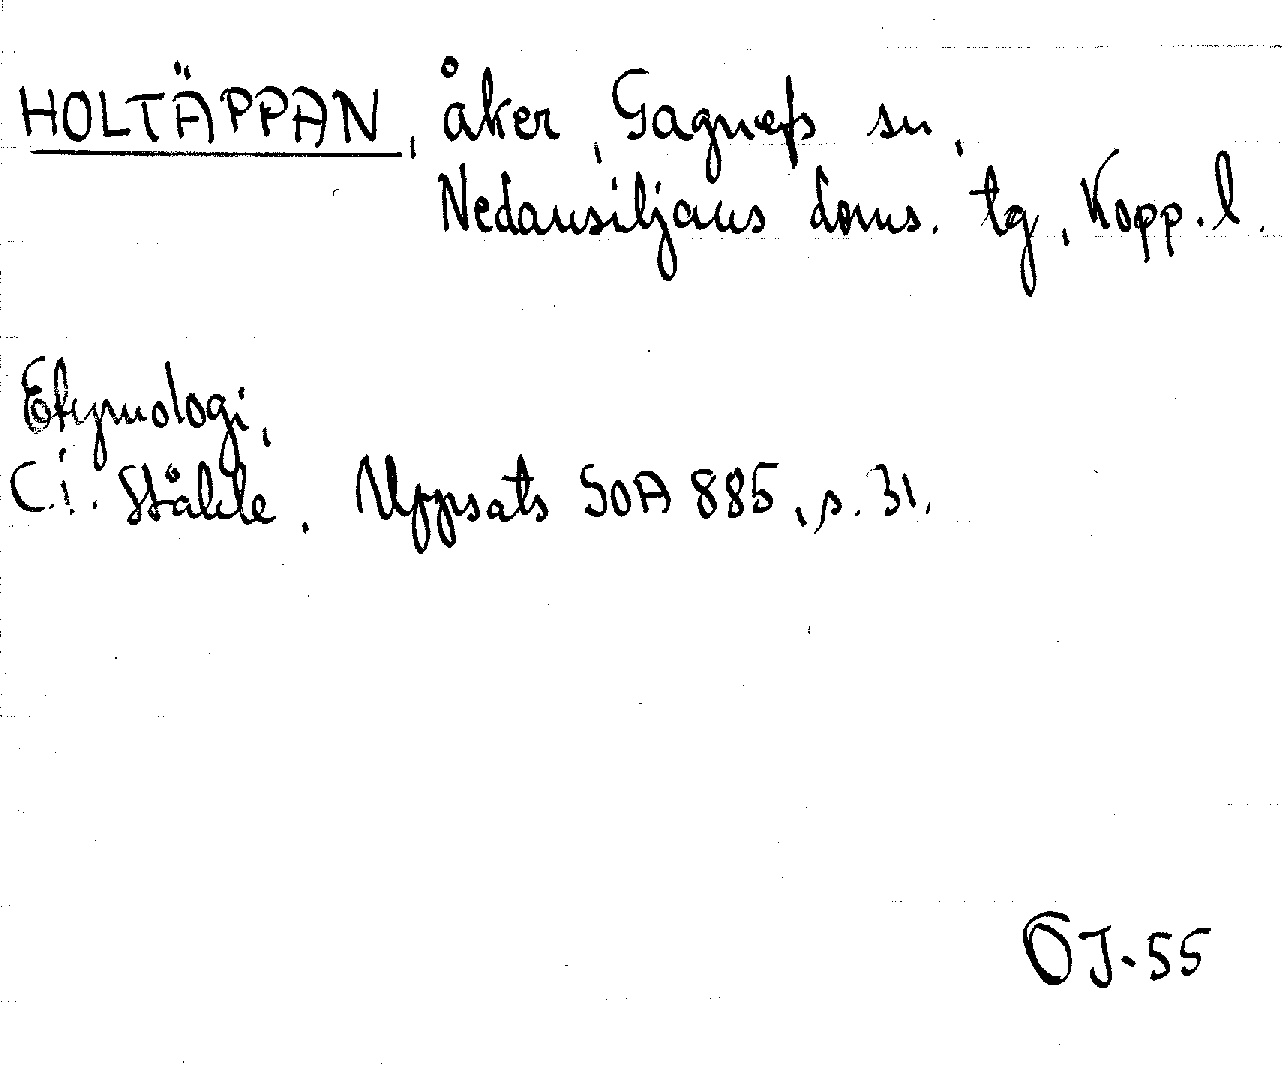 HOLTÄPPAN, åker, Gagnefs sn,
Nedansiljans doms. tg, Kopp. l.
Etymologi,
C. i. Ståhle. Uppsats SOA 885, s. 31.
OJ-55